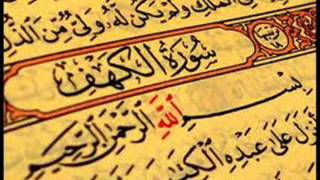 الْمُلْكِ وَلَمْ يَكُنْ لَهُ وَلِيٌّ مِنَ الذُّلِّ
سُورَةُ الْكَهْفِ
بِسْمِ اللّٰهِ الرَّحْمٰنِ الرَّحِيمِ
عَلَى عَبْدِهِ